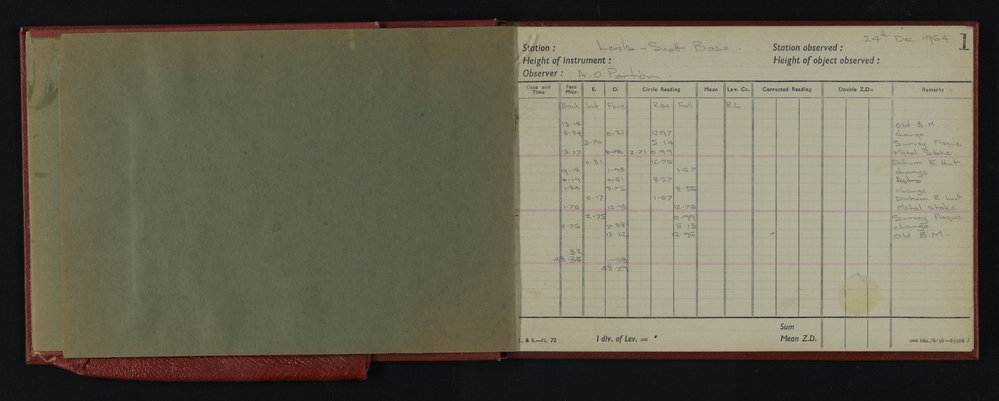 24th Dec 1964 1
Station : Levels - Scott Base. Station observed :
Height of instrument : Height of object observed :
Observer : A.O Partion.
Date and Time Face Micr. E. O. Circle Reading Mean Lev. Cn. Corrected Reading Double Z.Ds Remarks
Back Int Fore Rise Fall R.L.
13.18 Old B.M
8.84 0.21 12.97 change
3.70 5.14 Survey Plaque
13.07 2.71 0.99 Metal Stake
0.31 12.76 Datum E Hut
9.18 1.98 1.67 change
0.19 0.61 8.57 Astro
1.84 8.75 8.56 change
0.17 1.67 Datum E hut
1.76 12.93 12.76 Metal stake
2.75 0.99 Survey Plaque
0.26 7.88 5.13 change
13.22 12.96 Old B.M.
32
48.35
48.29
L. & S.—N. 72 1 div. of Lev. = " Sum
Mean Z.D.